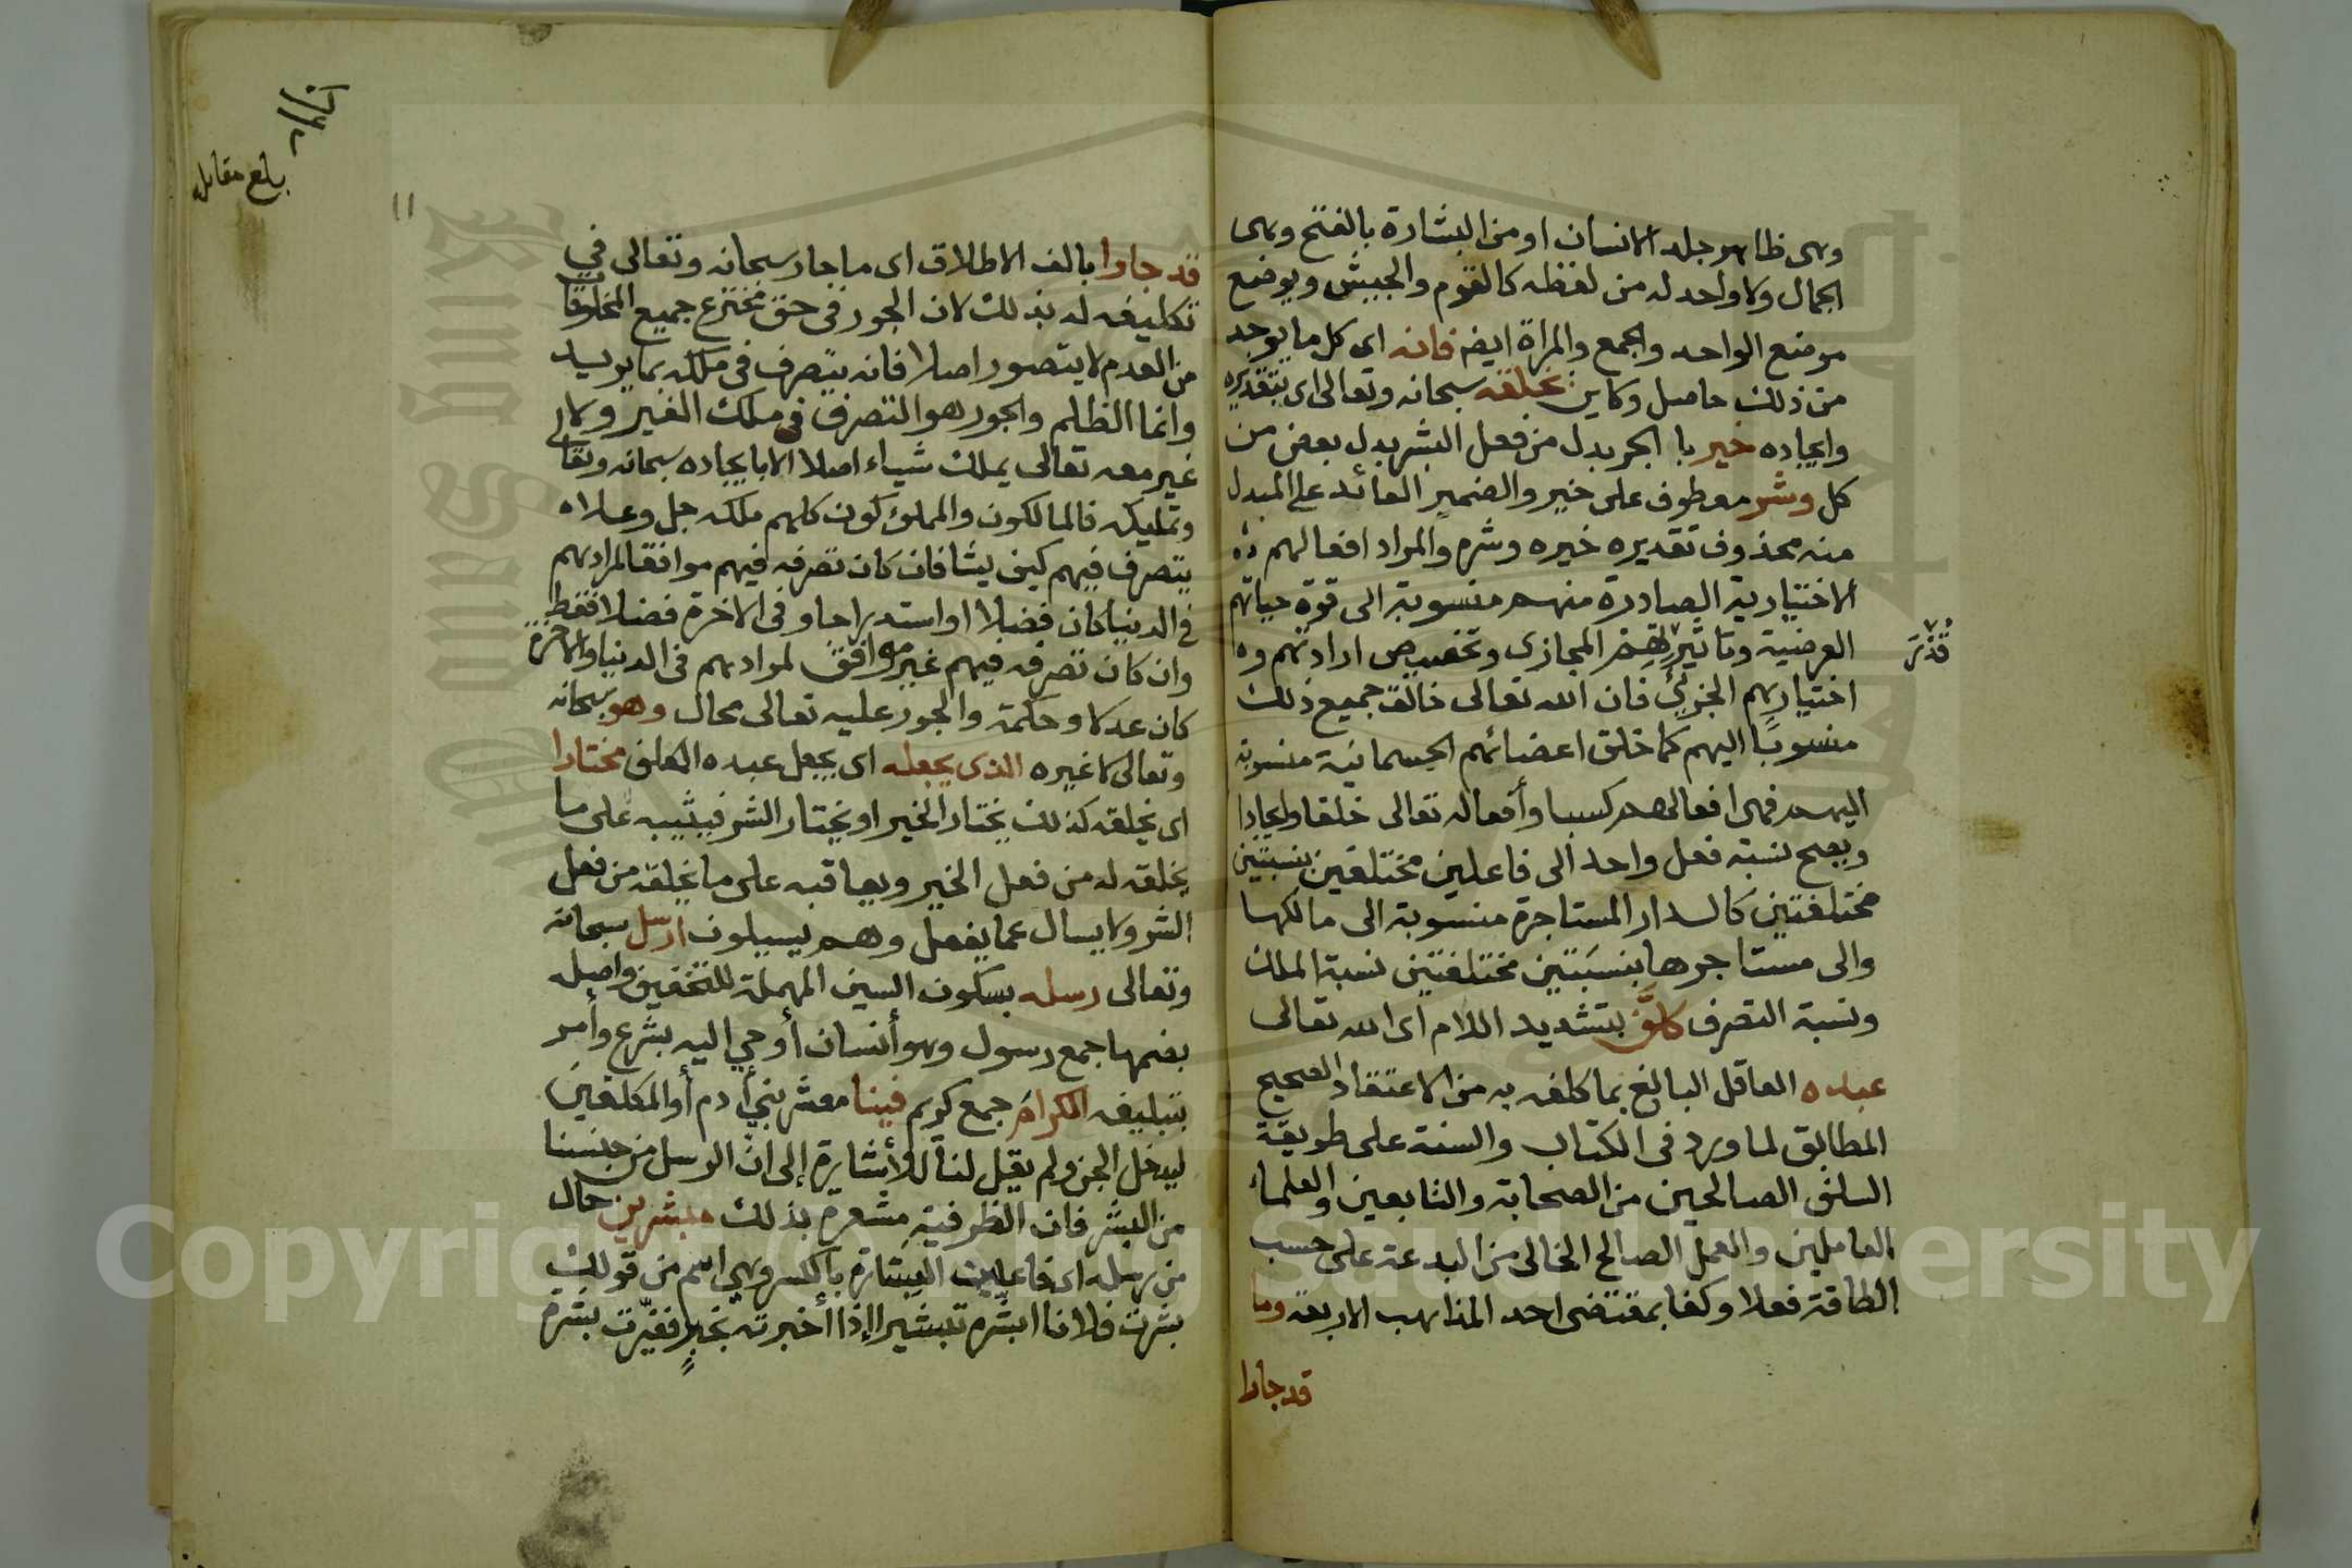 وهى ظاهر جلد الانسان او من البشارة بالفتح وهى
الجمال ولا واحد له من لفظه كالقوم والجيش ويوضع
موضع الواحد والجمع والمراة ايضم فانه اى كل ما يوجد
من ذلك حاصل وكاين بخلقه سبحانه وتعالى اى بتقديره
وايجاده خير با الجر بدل من فعل البشر بدل بعض من
كل وشر معطوف على خير والضمير العائد على المبدل
منه محذوف تقديره خيره وشره والمراد افعالهم
الاختيارية الصادرة منهم منسوبة الى قوة حياتهم
العرضية وتاثير المجازى وتخصيص ارادتهم و
اختيارهم الجزئي فان الله تعالى خالق جميع ذلك
منسوبًا اليهم كما خلق اعضائهم الجسمانية منسوبة
اليهم فهى افعالهم كسبا وأفعاله تعالى خلقا وايجادا
ويصح نسبة فعل واحد الى فاعلين مختلفين بنسبتين
مختلفتين كالدار المستاجرة منسوبة الى مالكها
والى مستاجرها بنسبتين مختلفتين نسبة الملك
ونسبة التصرف كلَّف بتشديد اللام اى الله تعالى
عبده العاقل البالغ بما كلفه به من الاعتقاد الصحيح
المطابق لما ورد فى الكتاب والسنة على طريقة
السلف الصالحين من الصحابة والتابعين والعلماء
العاملين والعمل الصالح الخالى من البدعة على حسب
الطاقة فعلا وكفا بمقتضى احد المذاهب الاربعة وما
قد جارا
بلغ مقابله
١١
قد جارا بالف الاطلاق اى ما جار سبحانه وتعالى في
تكليفه له بذلك لان الجور فى حق مخترع جميع المخلوقا
من العدم لا يتصور اصلا فانه يتصرف فى ملكه بما يريد
وانما الظلم والجور هو التصرف فى ملك الغير ولا
غير معه تعالى يملك شياء اصلا الا بايجاده سبحانه وتعالى
وتمليكه فالمالكون والمملوكون كلهم ملكه جل وعلا
يتصرف فيهم كيف يشا فان كان تصرفه فيهم موافقا لمرادهم
في الدنيا كان فضلا او استدراجا و فى الاخرة فضلا فقط
وان كان تصرفه فيهم غير موافق لمرادهم فى الدنيا والاخرة
كان عدلا وحكمة والجور عليه تعالى محال وهو سبحانه
وتعالى لا غيره الذى يجعله اى يجعل عبده المكلف مختارا
اى يخلقه كذلك يختار الخير او يختار الشر فيثيبه على ما
يخلقه له من فعل الخير ويعاقبه على ما يخلقه من فعل
الشر ولا يسال عما يفعل وهم يسيلون ارسل سبحانه
وتعالى رسله بسكون السين المهملة للتخفيف واصله
بضمها جمع رسول وهو أنسان أوحي اليه بشرع وأمر
بتبليغه الكرام جمع كريم فينا معشر بني أدم أو المكلفين
ليدخل الجن ولم يقل لنا للأشارة إلى ان الرسل من جنسنا
من البشر فان الظرفية مشعرة بذلك مبشرين حال
من رسله اى فاعلين البشارة بالكسر وهي اسم من قولك
بشرت فلانا ابشره تبشيرا إذا أخبرته بخبرٍ فغيّرت بشرة